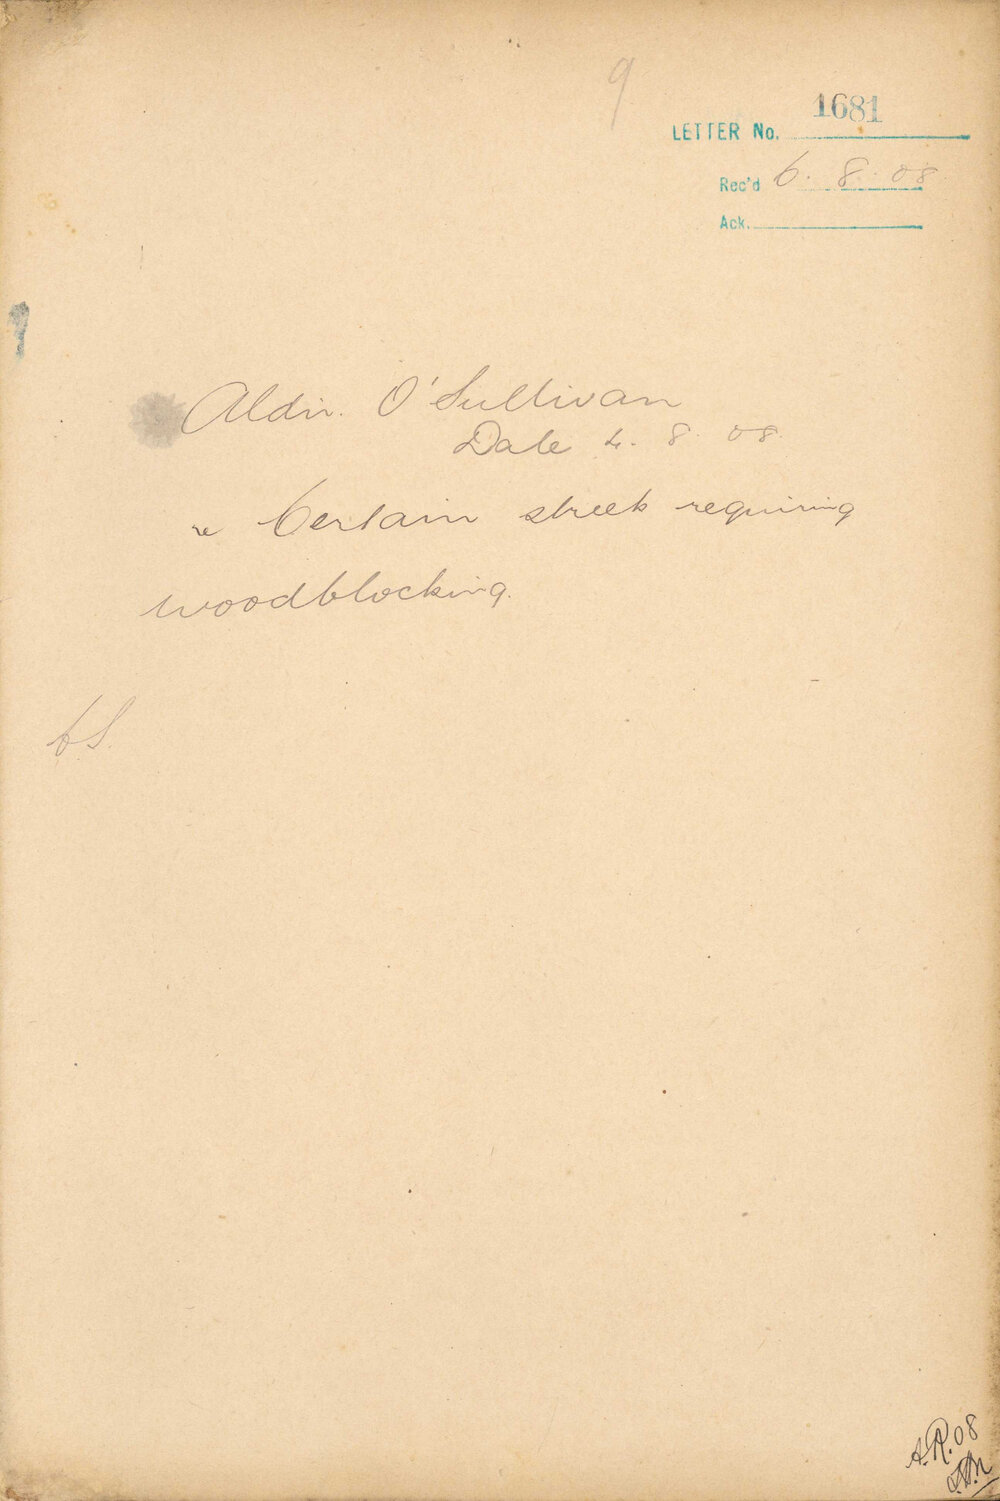 9
1681
LETTER No.
Rec'd 6. 8. 08
Ack.
Aldn. O'Sullivan
Date 4. 8. 08.
re Certain streets requiring
woodblocking.
CS.
A.R. 08